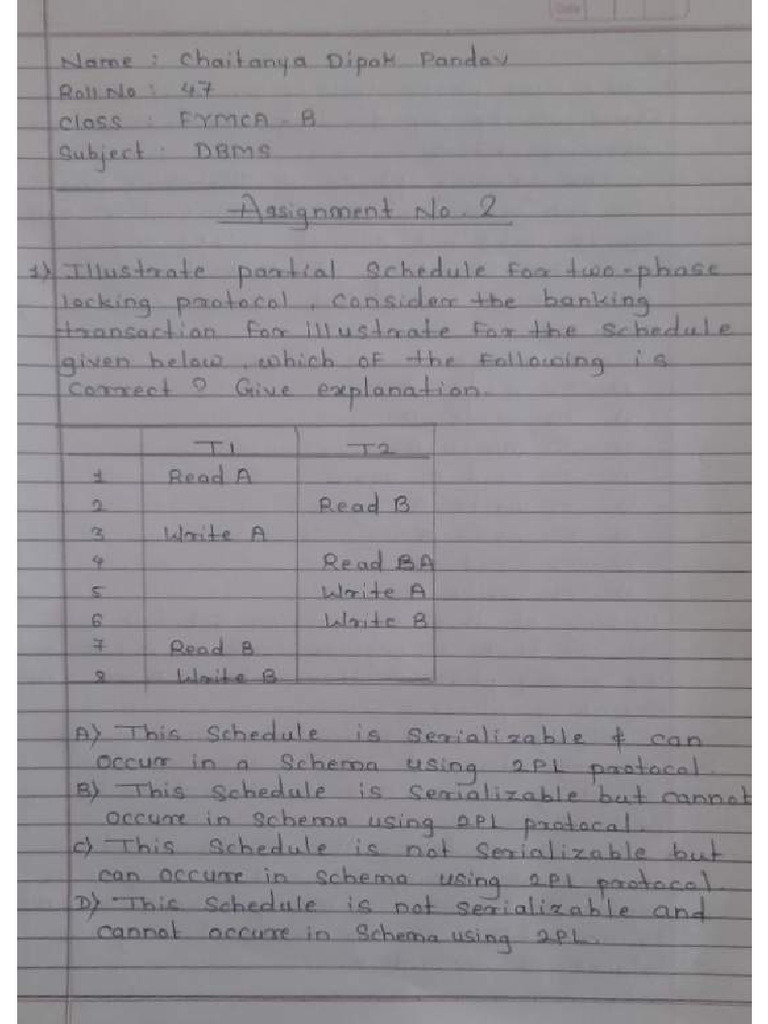 Name : Chaitanya Dipak Pandav
Roll No : 47
Class : FYMCA - B
Subject : DBMS
Assignment No. 2
1) Illustrate partial schedule for two-phase
locking protocol, consider the banking
transaction for illustrate for the schedule
given below, which of the following is
correct ? Give explanation.
T1 T2
1 Read A
2 Read B
3 Write A
4 Read BA
5 Write A
6 Write B
7 Read B
8 Write B
A) This schedule is serializable & can
occurr in a schema using 2PL protocol
B) This schedule is serializable but cannot
occurre in schema using 2PL protocal.
C) This schedule is not serializable but
can occurre in schema using 2PL protocol
D) This schedule is not serializable and
cannot occurre in schema using 2PL.